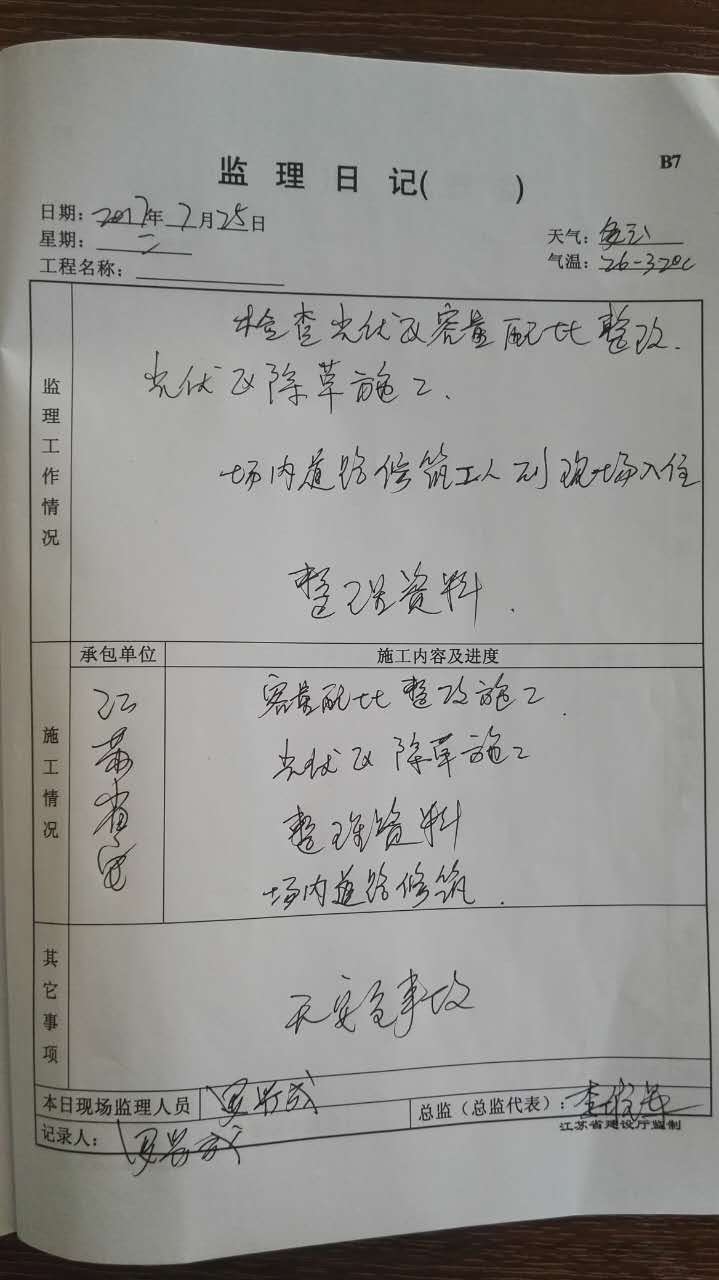 B7
监 理 日 记( )
日期：2017年7月25日
星期：二
工程名称：
天气：多云
气温：26-32℃
监理工作情况
检查光伏区容量配比整改.
光伏区除草施工.
场内道路修筑工人到现场入住
整理资料.
承包单位
施工内容及进度
施工情况
江苏省
容量配比整改施工.
光伏区除草施工
整理资料
场内道路修筑.
其它事项
无安全事故
本日现场监理人员
总监（总监代表）：李
记录人：
江苏省建设厅监制